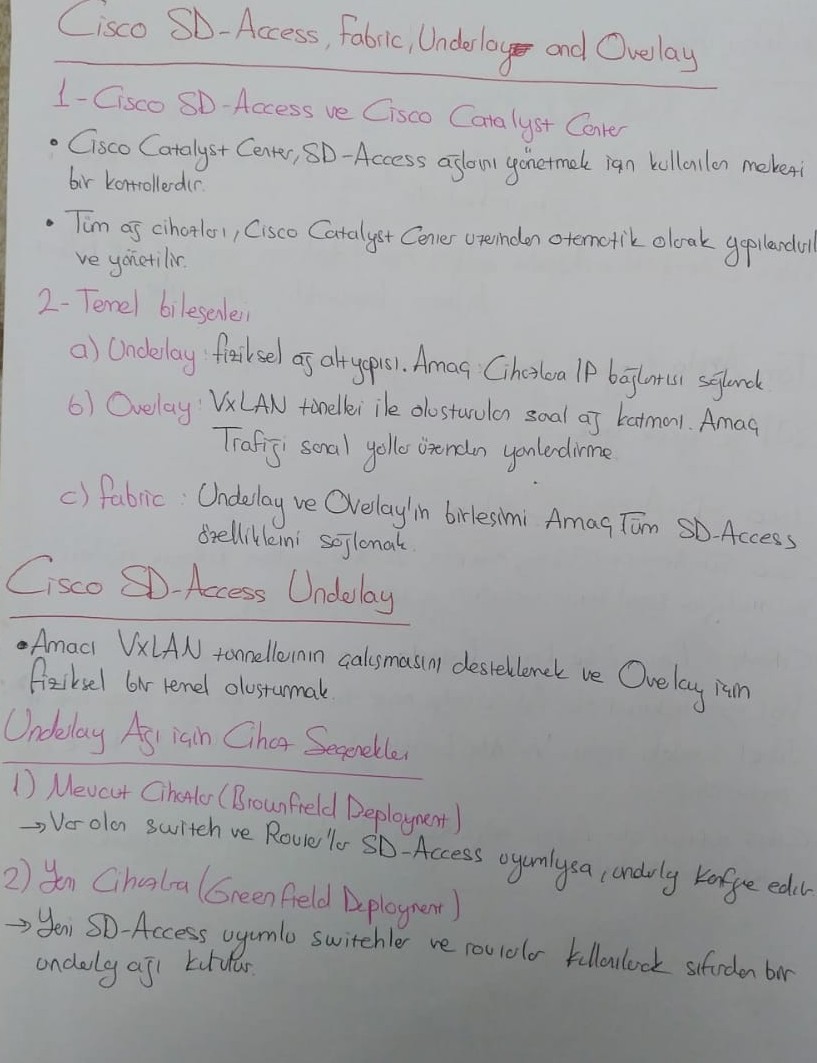 Cisco SD-Access, Fabric, Underlay and Overlay
1-Cisco SD-Access ve Cisco Catalyst Center
• Cisco Catalyst Center, SD-Access ağlarını yönetmek için kullanılan merkezi
bir kontrollerdır.
• Tüm ağ cihazları, Cisco Catalyst Center üzerinden otomatik olarak yapılandırıl
ve yönetilir.
2-Temel bileşenleri
a) Underlay: fiziksel ağ altyapısı. Amaç: Cihazlara IP bağlantısı sağlamak
b) Overlay: VxLAN tünelleri ile oluşturulan sanal ağ katmanı. Amaç
Trafiği sanal yollar üzerinden yönlendirme
c) fabric: Underlay ve Overlay'in birleşimi Amaç Tüm SD-Access
özelliklerini sağlamak.
Cisco SD-Access Underlay
• Amacı VxLAN tünnellerinin çalışmasını desteklemek ve Overlay için
fiziksel bir temel oluşturmak.
Underlay Ağı için Cihaz Seçenekleri
1) Mevcut Cihazlar (Brownfield Deployment)
→ Var olan switch ve Router'lar SD-Access uyumlysa, underly konfgre edilir
2) Yeni Cihazlra (Greenfield Deployment)
→ Yeni SD-Access uyumlu switchler ve routerlar kullanılarak sıfırdan bir
underly ağı kurulur.